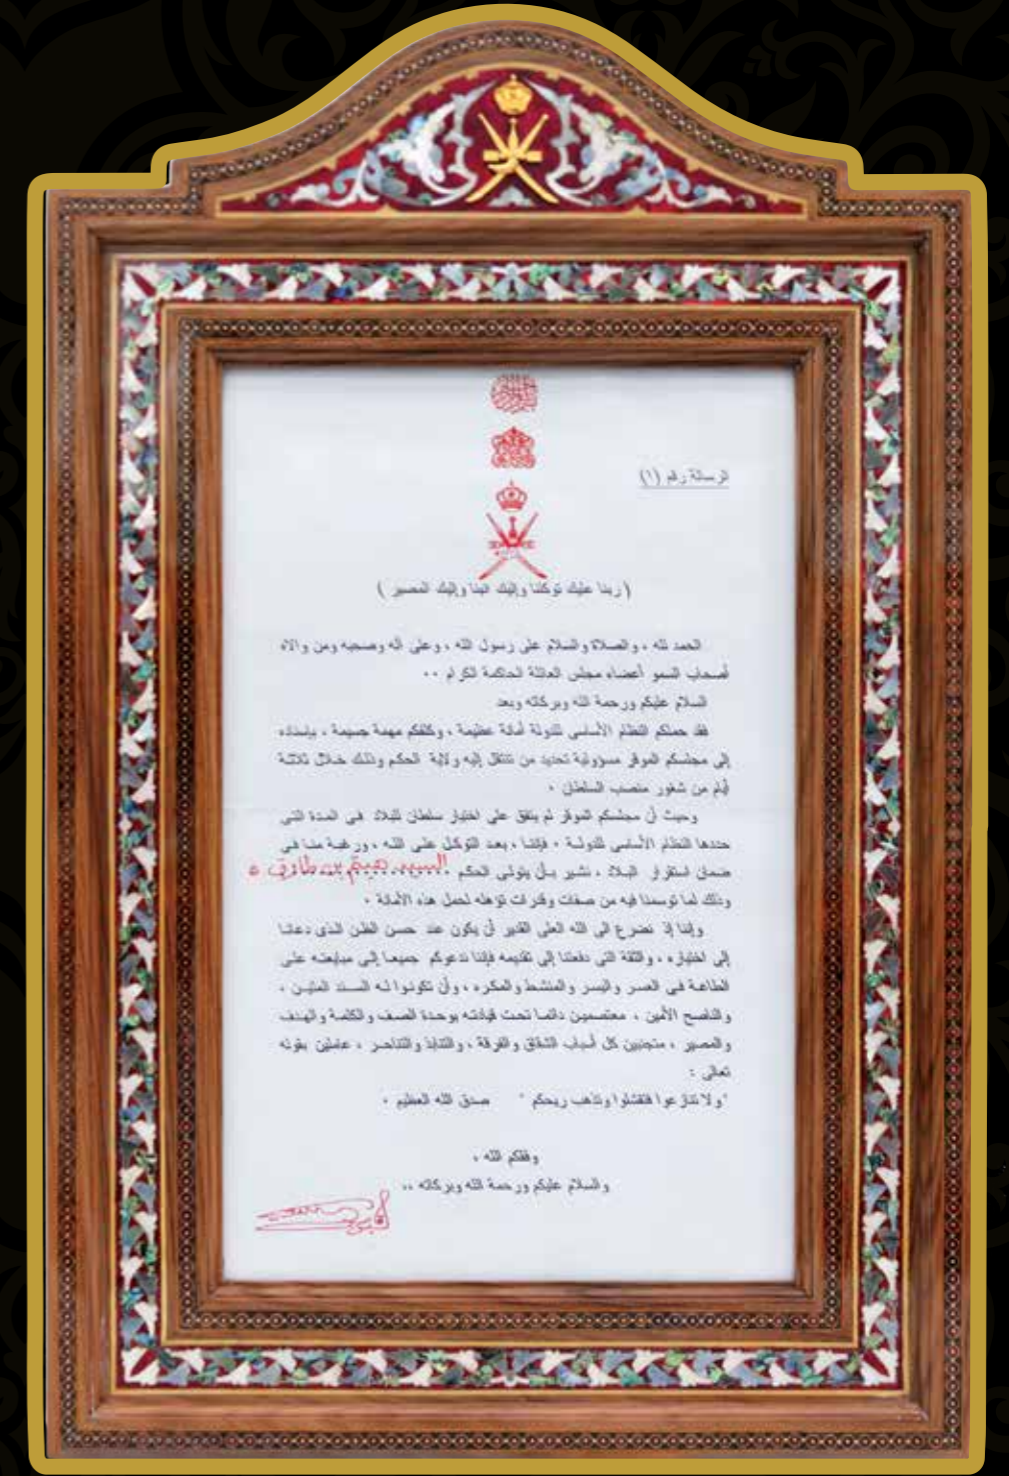 الرسالة رقم (١)
( ربنا عليك توكلنا وإليك أنبنا وإليك المصير )
الحمد لله ، والصلاة والسلام على رسول الله ، وعلى آله وصحبه ومن والاه
أصحاب السمو أعضاء مجلس العائلة الحاكمة الكرام ٠٠
السلام عليكم ورحمة الله وبركاته وبعد
فقد حملكم النظام الأساسى للدولة أمانة عظيمة ، وكلفكم مهمة جسيمة ، بإسناده
إلى مجلسكم الموقر مسؤولية تحديد من تنتقل إليه ولاية الحكم وذلك خلال ثلاثة
أيام من شغور منصب السلطان ٠
وحيث أن مجلسكم الموقر لم يتفق على اختيار سلطان للبلاد فى المدة التى
حددها النظام الأساسى للدولة ، فإننا ، بعد التوكل على الله ، ورغبة منا فى
ضمان استقرار البلاد ، نشير بأن يتولى الحكم السيد هيثم بن طارق
وذلك لما توسمنا فيه من صفات وقدرات تؤهله لحمل هذه الأمانة ٠
وإننا إذ نضرع الى الله العلى القدير أن يكون عند حسن الظن الذى دعانا
إلى اختياره ، والثقة التى دفعتنا إلى تقديمه فإننا ندعوكم جميعا إلى مبايعته على
الطاعة فى العسر واليسر والمنشط والمكره ، وأن تكونوا له السند المتين ،
والناصح الأمين ، معتصمين دائما تحت قيادته بوحدة الصف والكلمة والهدف
والمصير ، متجنبين كل أسباب الشقاق والفرقة ، والتنابذ والتناحر ، عاملين بقوله
تعالى :
"ولا تنازعوا فتفشلوا وتذهب ريحكم " صدق الله العظيم ٠
وفقكم الله ،
والسلام عليكم ورحمة الله وبركاته ،،